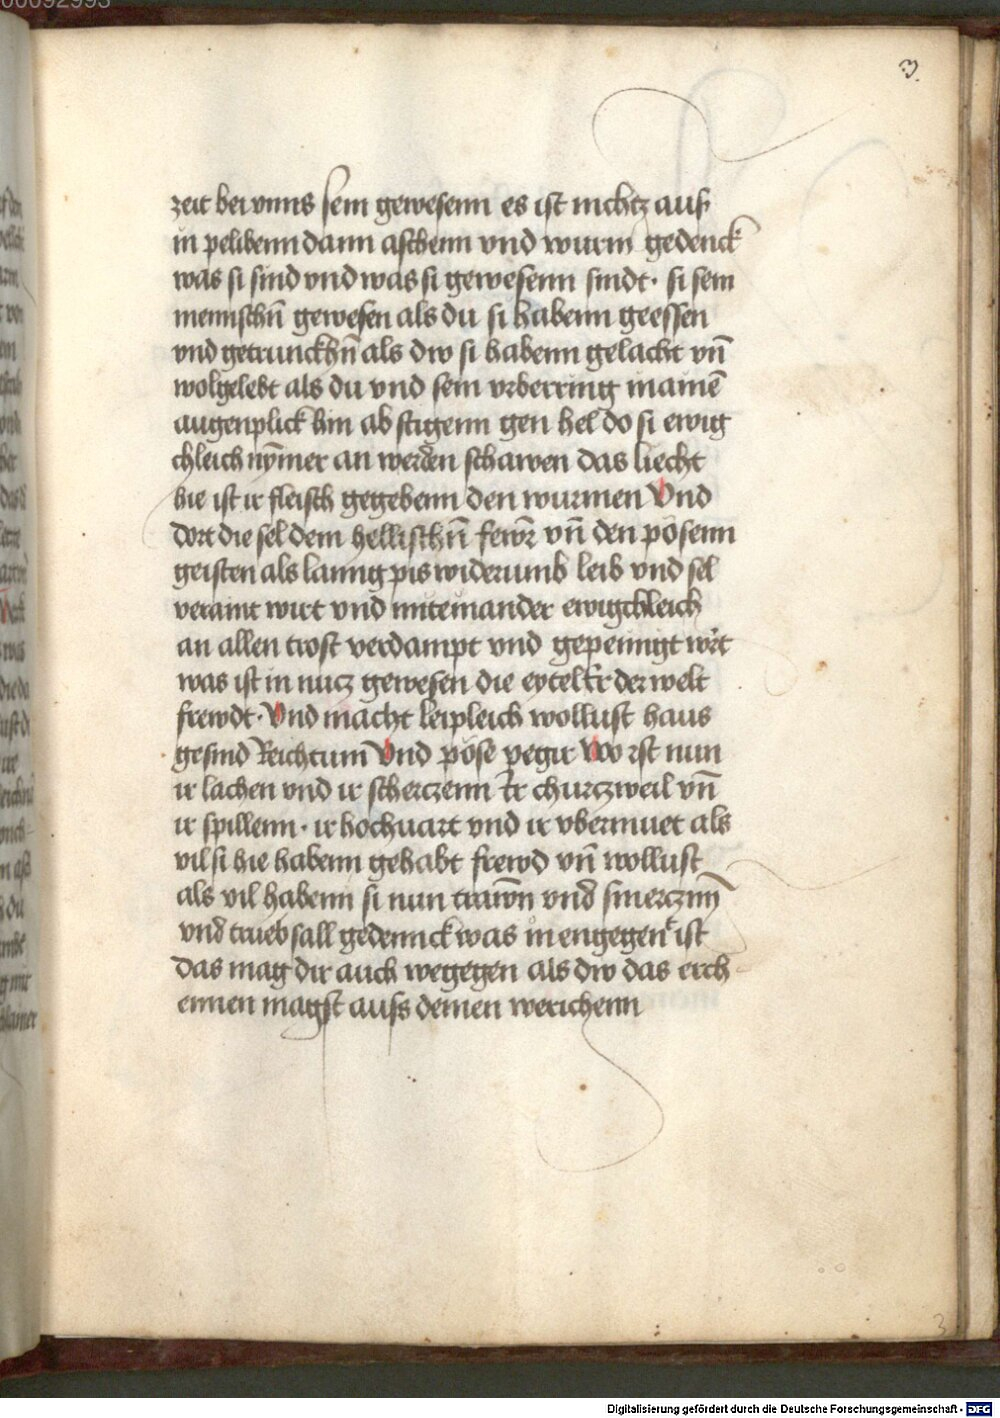 00092993
3
zeit bei vnns sein gewesenn es ist nichtz aus
in pelibenn dann aschenn vnd wurm gedenck
was si sind vnd was si gewesenn sindt · si sein
mennschn̄ gewesen als du si habenn geessen
vnd getrunckhn̄ als dw si habenn gelacht vn̄
wolgelebt als du vnd sein vrberring in ainē
augenplick hin ab stigenn gen hel do si ewig
chleich nȳmer an werden schawen das liecht
hie ist ir fleisch gegebenn den wurmen Vnd
dort die sel dem hellischn̄ fewr vn̄ den pösenn
geisten als lanng pis widerumb leib vnd sel
veraint wirt vnd miteinander ewigchleich
an allen trost verdampt vnd gepeinigt wirt
was ist in nucz gewesen die eytel Er der welt
frewdt · Vnd macht leipleich wollust haus
gesind Reichtum Vnd pöse pegir Wo ist nun
ir lachen vnd ir scherczenn Er churczweil vn̄
ir spillenn · ir hochuart vnd ir vbermuet als
vil si hie habenn gehabt frewd vn̄ wollust
als vil habenn si nun trawrn vnd smerczn̄
vnd truebsall gedennck was in engegent ist
das mag dir auch wegegen als dw das erch
ennen magst auss deinen werichenn
3
Digitalisierung gefördert durch die Deutsche Forschungsgemeinschaft - DFG